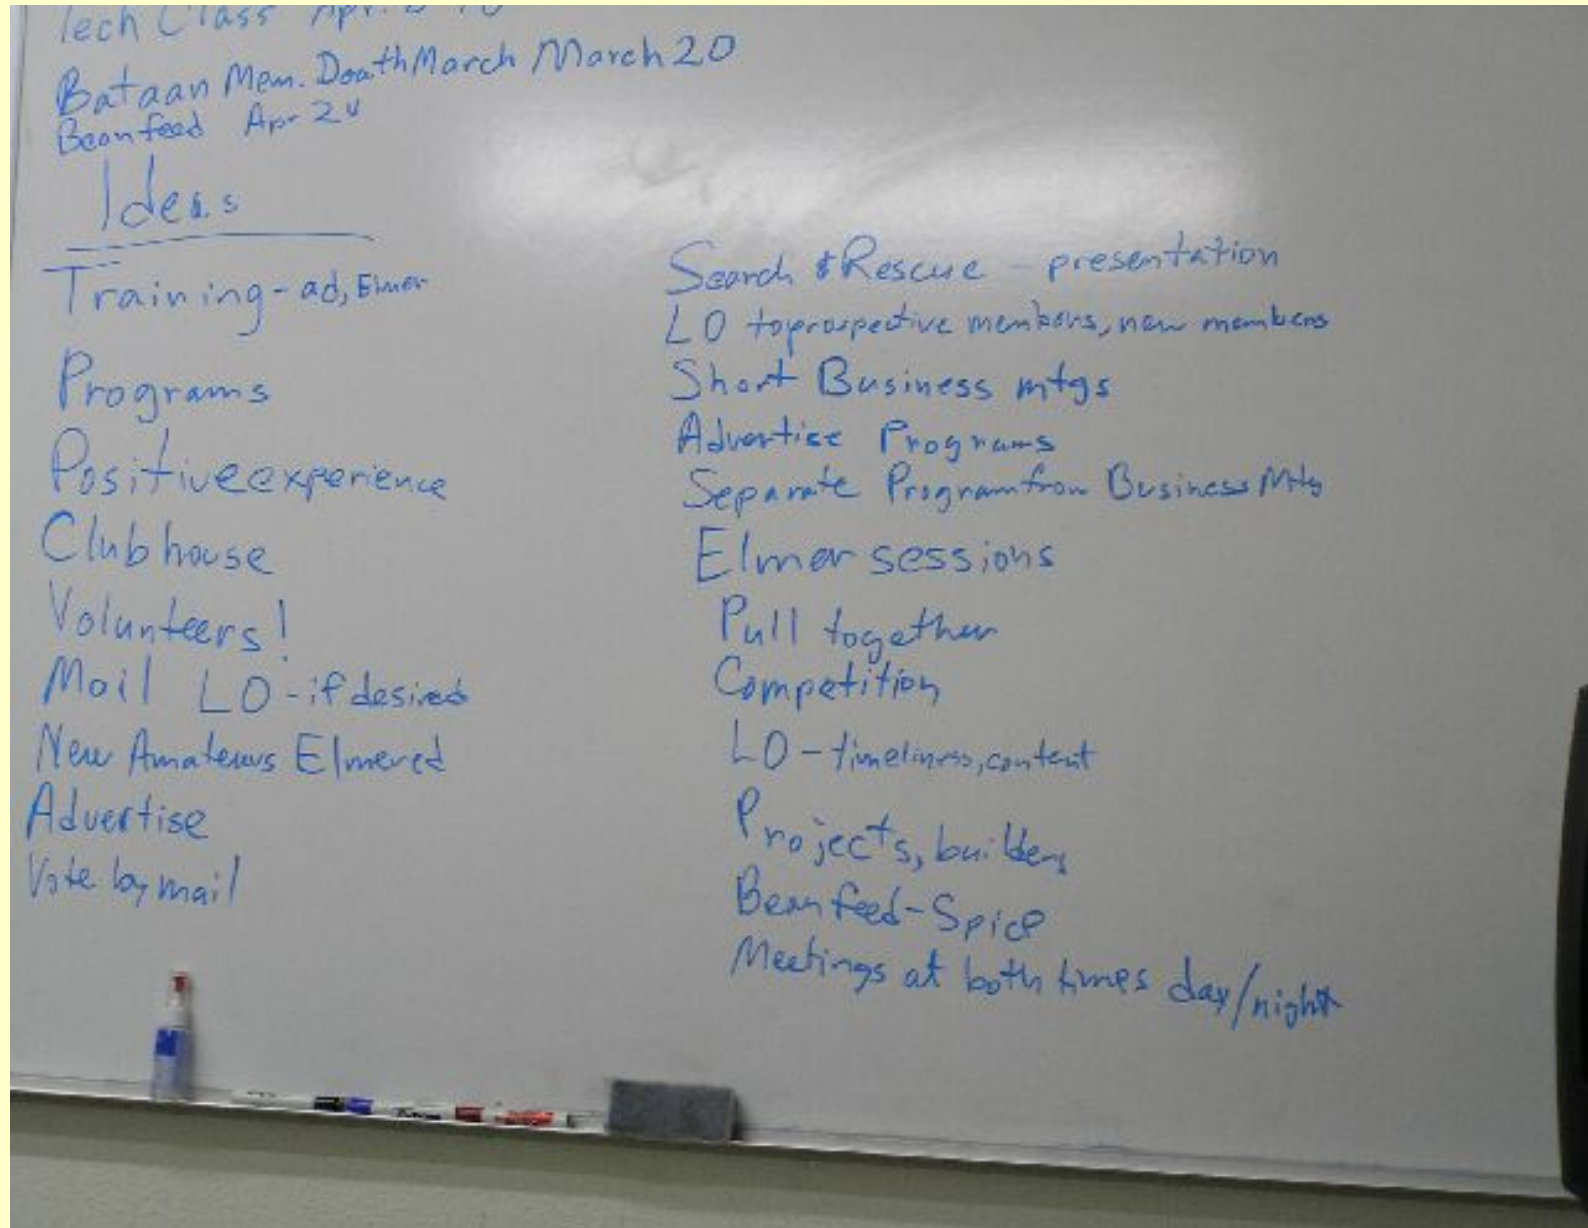 Tech Class Apr.
Bataan Mem. Death March March 20
Beanfeed Apr 24
Ideas
Training - ad, Elmer
Programs
Positive experience
Clubhouse
Volunteers!
Mail LO - if desired
New Amateurs Elmered
Advertise
Vote by mail
Search & Rescue - presentation
LO to prospective members, new members
Short Business mtgs
Advertise Programs
Separate Program from Business Mtg
Elmer sessions
Pull together
Competition
LO - timeliness, content
Projects, builders
Beanfeed - Spice
Meetings at both times day/night